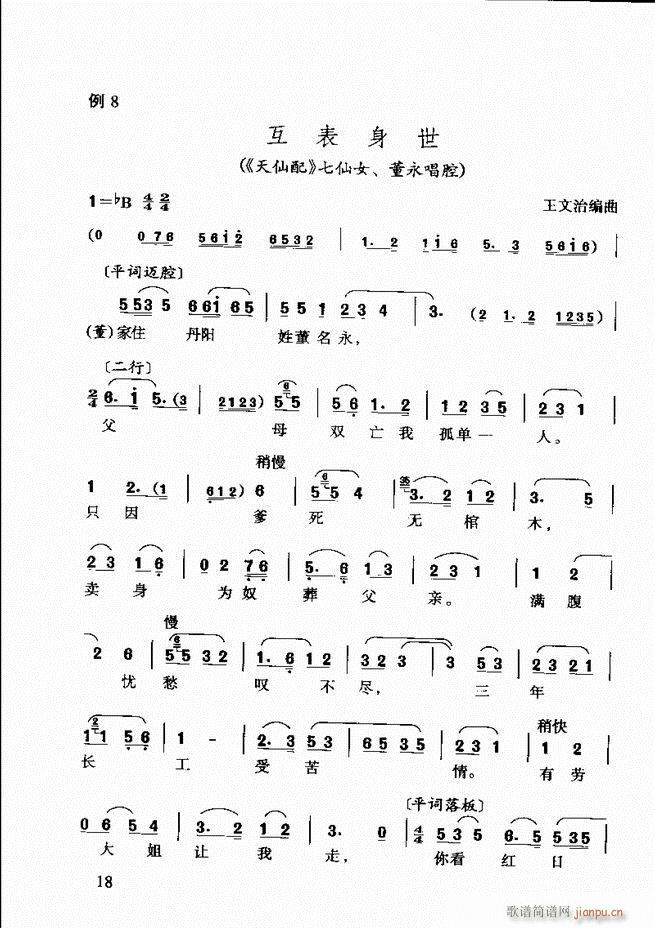 例 8
互 表 身 世
(《天仙配》七仙女、董永唱腔)
1=♭B 4/4 2/4 王文治编曲
(0 0 7 6 5 6 1 2 6 5 3 2 | 1. 2 1 1 6 5. 3 5 6 1 6 )
〔平词迈腔〕
5 5 3 5 6 6 1 6 5 | 5 5 1 2 3 4 | 3. (2 1. 2 1 2 3 5) |
(董)家住 丹阳 姓董名永,
〔二行〕
2/4 6. 1 5. (3 | 2 1 2 3) 5 5 | 5 6 1. 2 | 1 2 3 5 | 2 3 1 |
父 母 双 亡 我 孤单一 人。
稍慢
1 2. (1 | 6 1 2) 6 | 5 5 5 4 | 3. 2 1 2 | 3. 5 |
只 因 爹 死 无 棺 木,
2 3 1 6 | 0 2 7 6 | 5. 6 1 3 | 2 3 1 | 1 2 |
卖 身 为奴 葬 父 亲。 满 腹
慢
2 6 | 5 5 3 2 | 1. 6 1 2 | 3 2 3 | 3 5 3 | 2 3 2 1 |
忧 愁 叹 不 尽, 三 年
稍快
1 1 5 6 | 1 - | 2. 3 5 3 | 6 5 3 5 | 2 3 1 | 1 2 |
长 工 受 苦 情。 有 劳
〔平词落板〕
0 6 5 4 | 3. 2 1 2 | 3. 0 | 4/4 5 3 5 6. 5 5 3 5 |
大 姐 让 我 走, 你看 红 日
18
歌谱简谱网 jianpu.cn